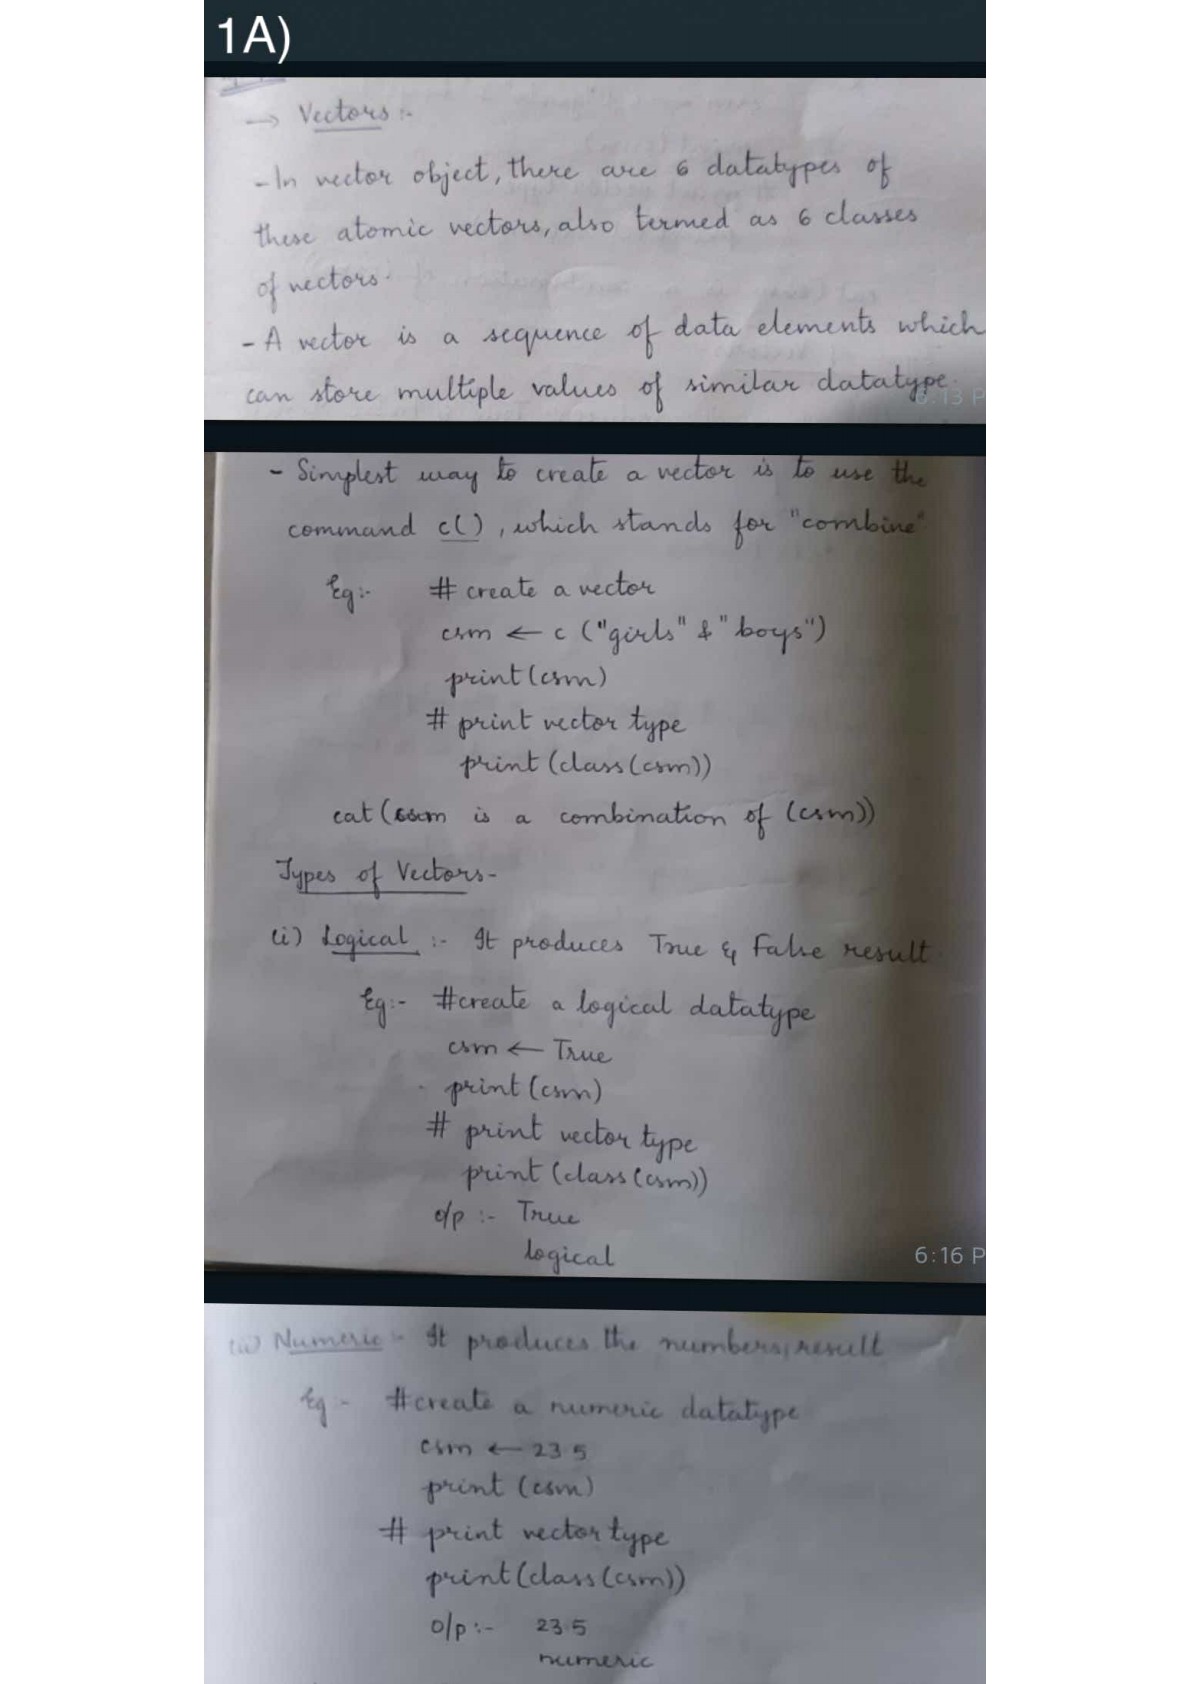 1A)
→ Vectors :-
- In vector object, there are 6 datatypes of
these atomic vectors, also termed as 6 classes
of vectors.
- A vector is a sequence of data elements which
can store multiple values of similar datatype.
6:13 P
- Simplest way to create a vector is to use the
command c(), which stands for "combine"
Eg:- # create a vector
csm ← c ("girls" & "boys")
print (csm)
# print vector type
print (class (csm))
cat ( is a combination of (csm))
Types of Vectors-
(i) Logical :- It produces True & False result.
Eg:- #create a logical datatype
csm ← True
print (csm)
# print vector type
print (class (csm))
o/p :- True
logical
6:16 P
(ii) Numeric :- It produces the numbers result
Eg - #create a numeric datatype
csm ← 23.5
print (csm)
# print vector type
print (class (csm))
o/p :- 23.5
numeric